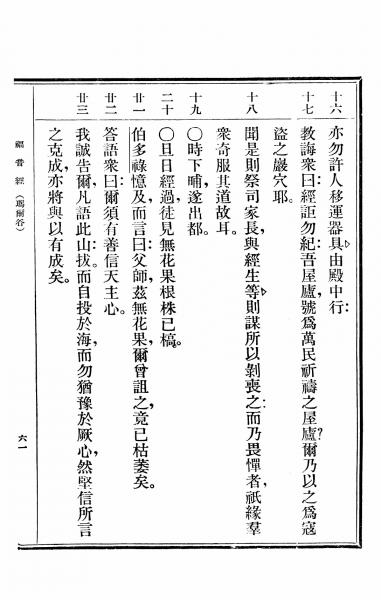 十六 亦勿許人移運器具由殿中行：
十七 教誨衆曰：經詎勿紀吾屋廬，號爲萬民祈禱之屋廬？爾乃以之爲寇
盜之巖穴耶。
十八 聞是則祭司家長，與經生等，則謀所以剝喪之：而乃畏憚者，祇緣羣
衆奇服其道故耳。
十九 〇時下晡，遂出都。
二十 〇旦日經過，徒見無花果根株已槁。
廿一 伯多祿憶及，而言曰：父師，茲無花果，爾曾詛之，竟已枯萎矣。
廿二 答語衆曰：爾須有善信天主心。
廿三 我誠告爾，凡語此山：拔。而自投於海，而勿猶豫於厥心，然堅信所言
之克成，亦將與以有成矣。
福音經（瑪爾谷）
六一